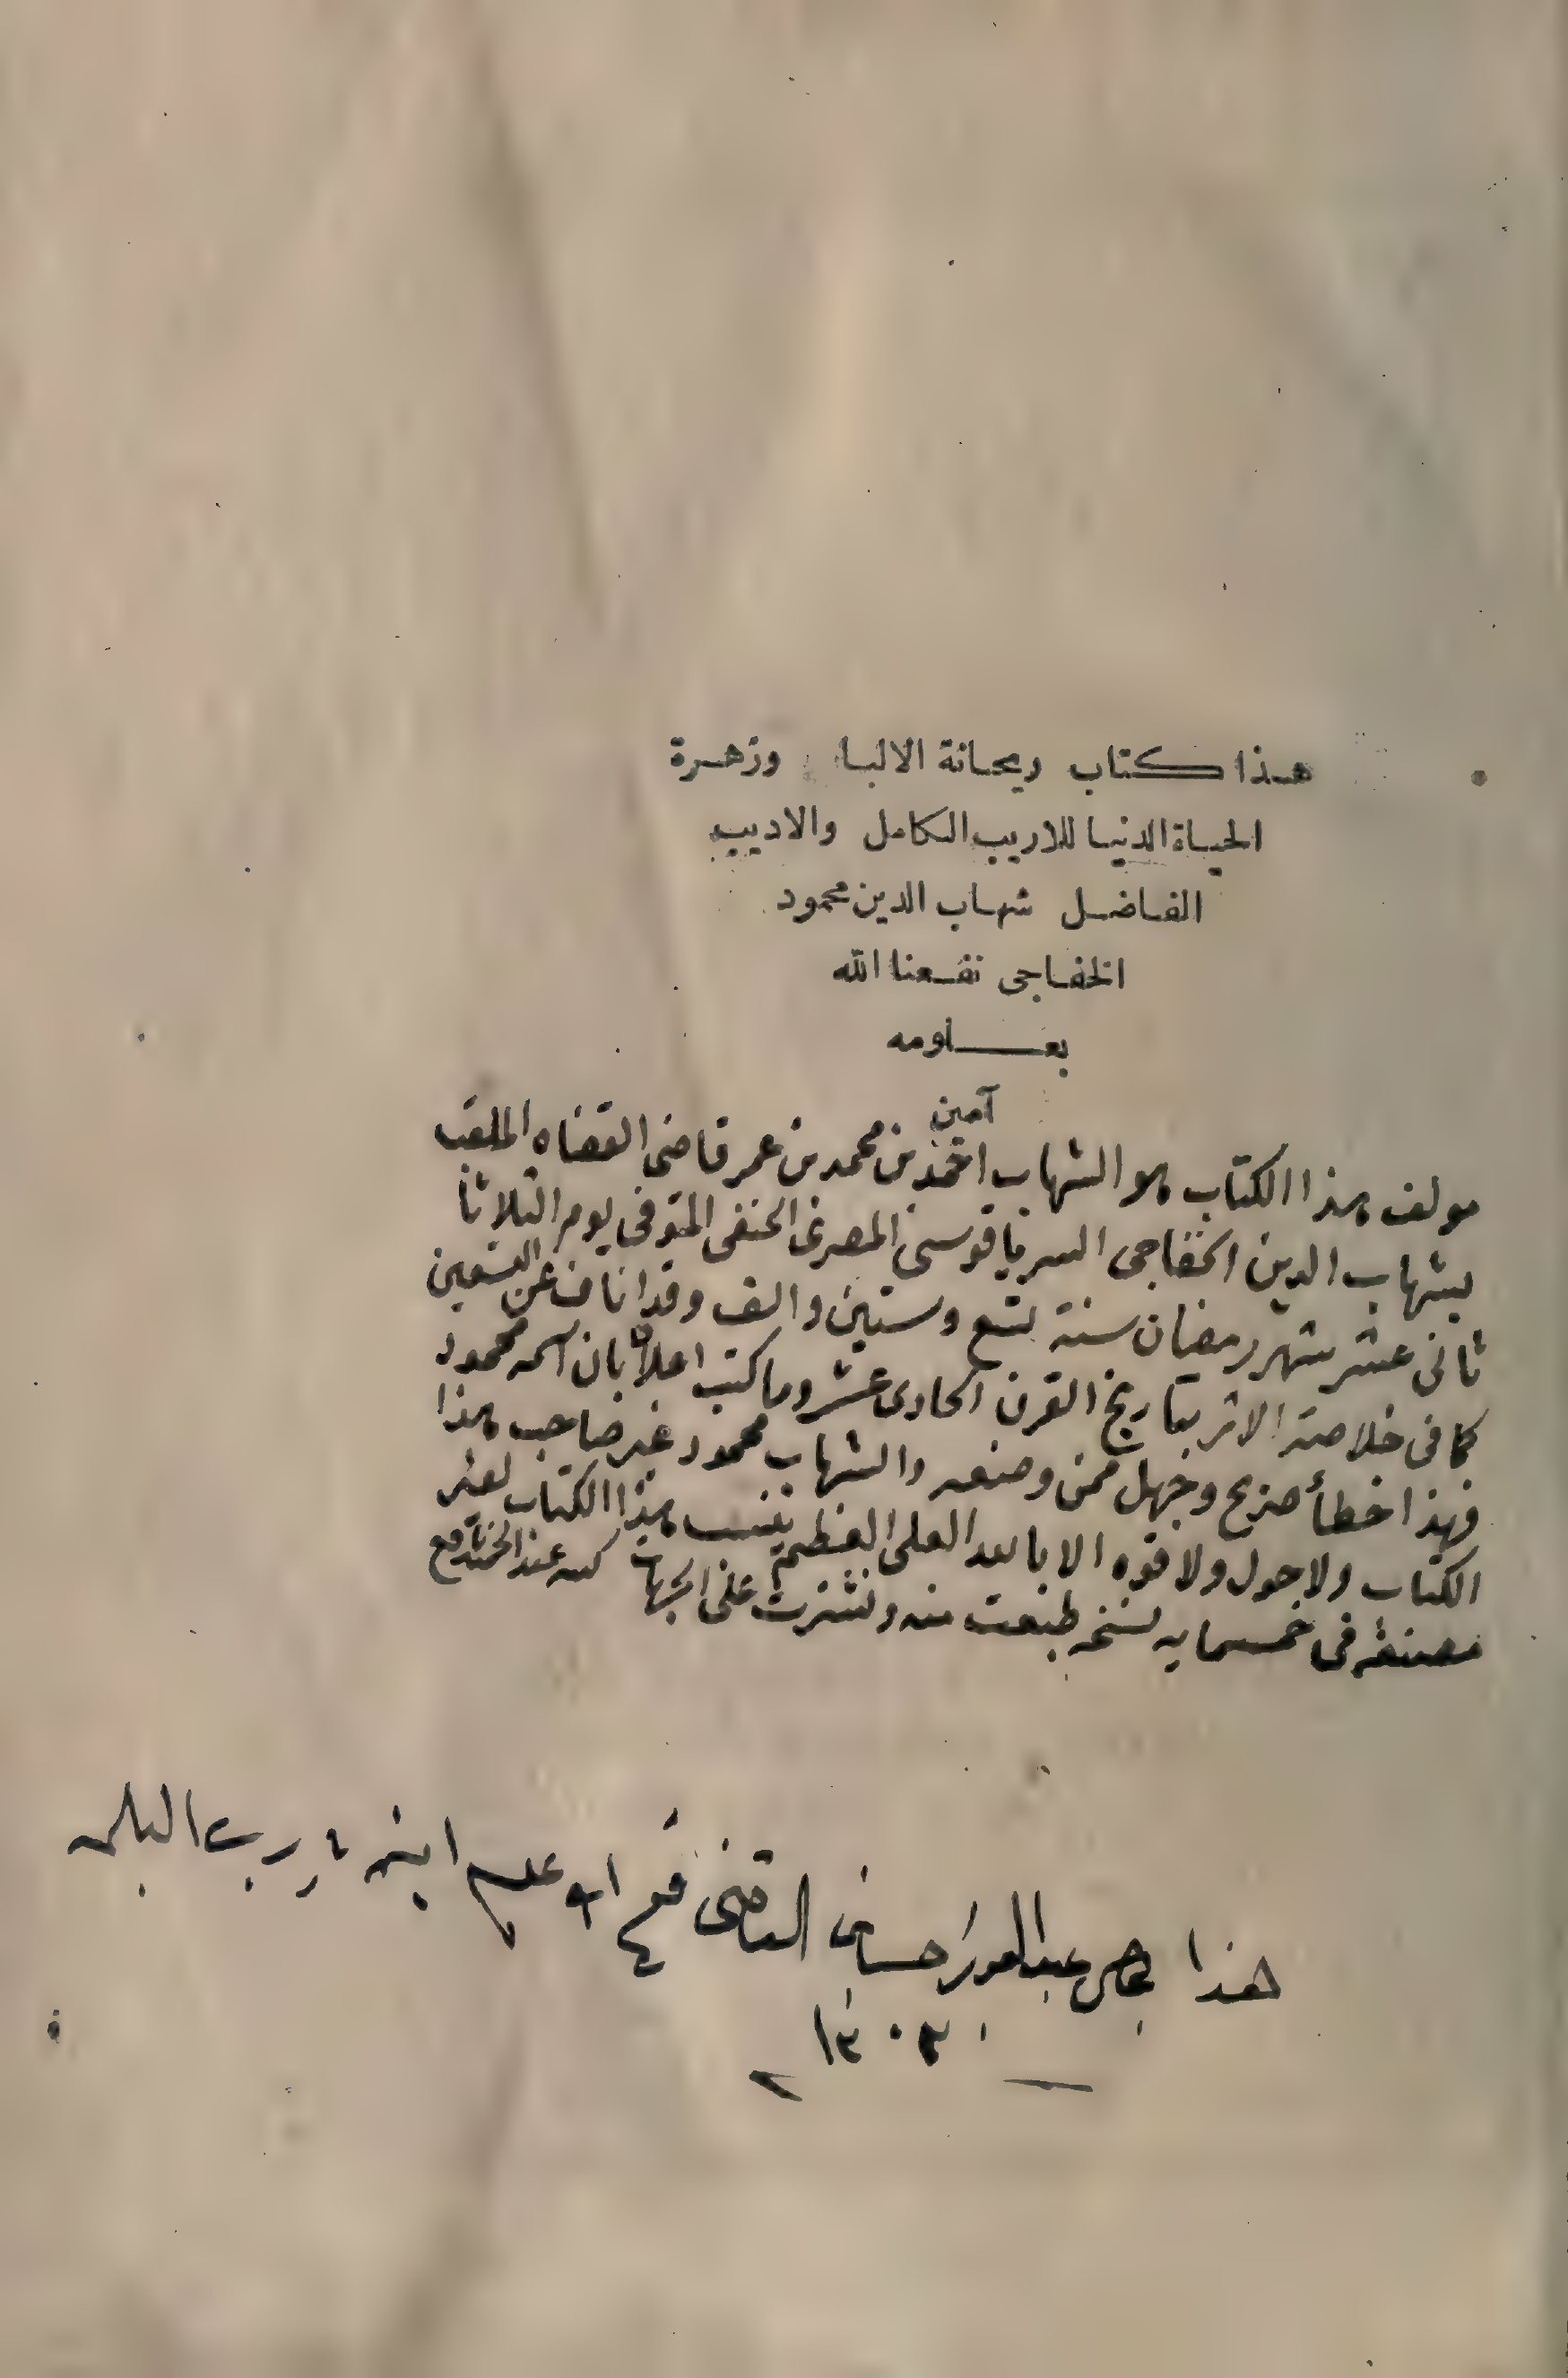 هذا كتاب ريحانة الالبا وزهرة
الحياة الدنيا للاريب الكامل والاديب
الفاضل شهاب الدين محمود
الخفاجى نفعنا الله
بعلومه
آمين
مولف هذا الكتاب هو الشهاب احمد بن محمد بن عمر قاضى القضاه الملقب
بشهاب الدين الخفاجى السرياقوسى المصرى الحنفى المتوفى يوم الثلاثا
ثانى عشر شهر رمضان سنة تسع وستين والف وقد اناف عن التسعين
كما فى خلاصة الاثر بتاريخ القرن الحادى عشر وما كتب اعلاه بان اسمه محمود
فهذا خطأ صريح وجهل ممن وضعه والشهاب محمود غير صاحب هذا
الكتاب ولا حول ولا قوه الا بالله العلى العظيم ينسب هذا الكتاب لغير
مصنفه فى خمسمايه نسخه طبعت منه ونشرت على الجهات كتبه
هذا القاضى
١٣٠٣